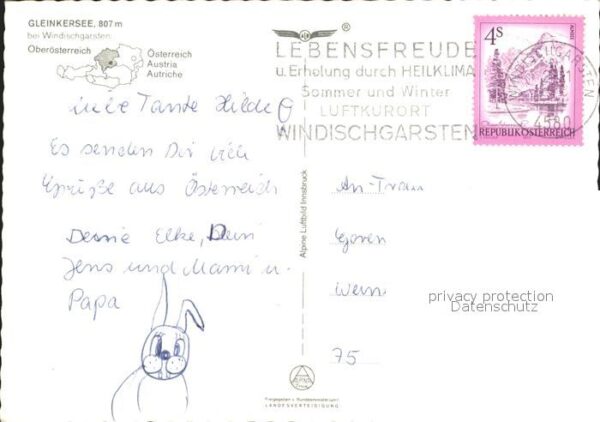 GLEINKERSEE, 807 m
bei Windischgarsten
Oberösterreich
Österreich
Austria
Autriche
®
LEBENSFREUDE
u. Erholung durch HEILKLIMA
Sommer und Winter
LUFTKURORT
WINDISCHGARSTEN
WINDISCHGARSTEN
4580
4S
REPUBLIK ÖSTERREICH
Liebe Tante Hilde
Es senden Dir viele
Grüße aus Österreich
Deine Elke, Dein
Jens und Mami u.
Papa
Alpine Luftbild Innsbruck
An Frau
75
privacy protection
Datenschutz
Freigegeben v. Bundesministerium f.
LANDESVERTEIDIGUNG